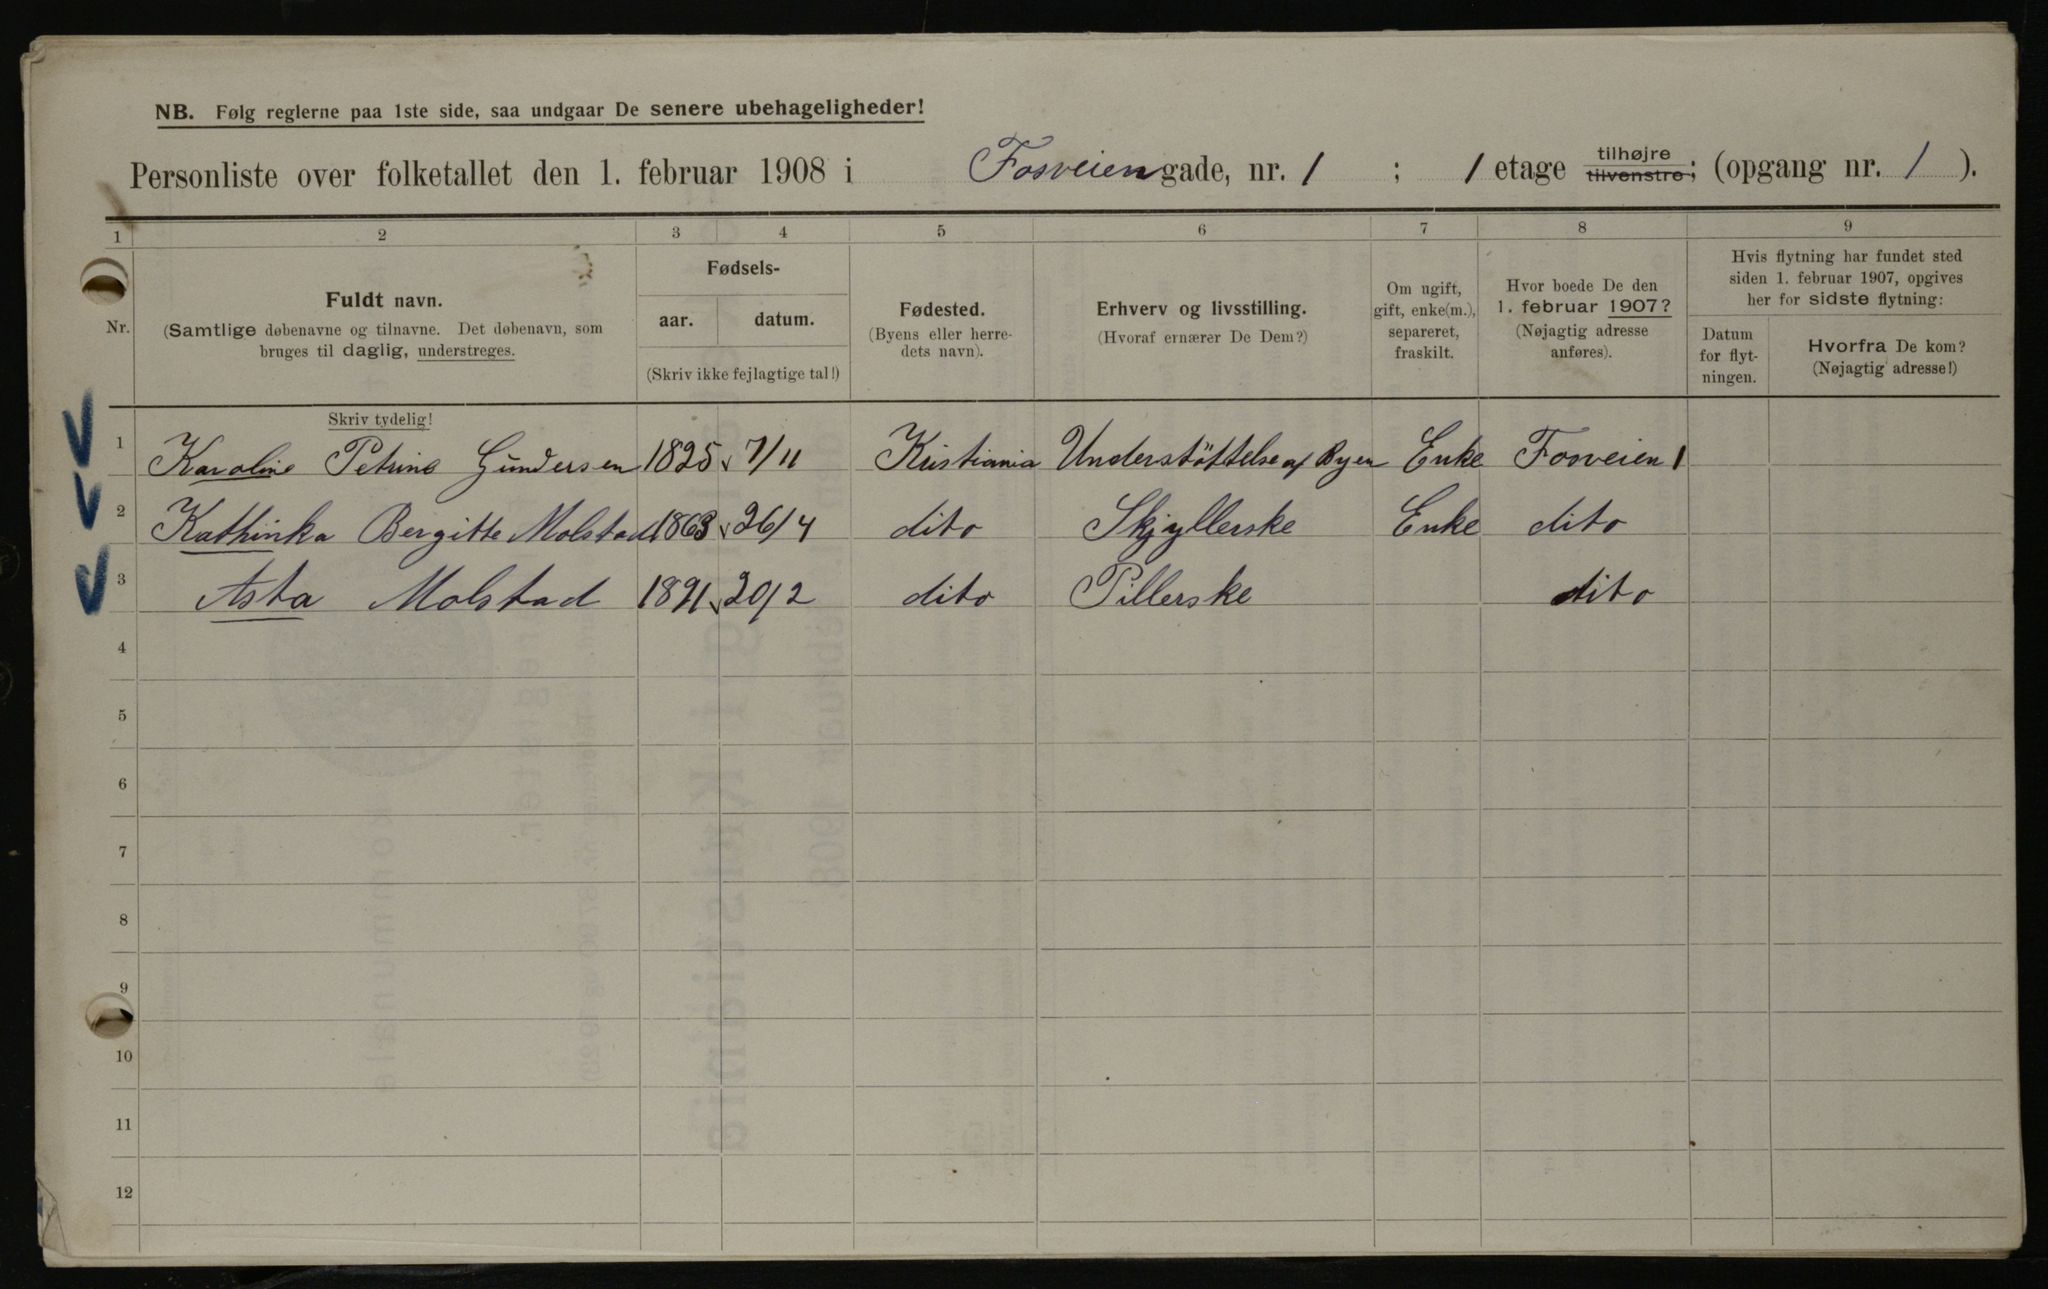 NB. Følg reglerne paa 1ste side, saa undgaar De senere ubehageligheder!
Personliste over folketallet den 1. februar 1908 i Fosveien gade, nr. 1 ; 1 etage tilhøjre tilvenstre; (opgang nr. 1 ).
1 2 3 4 5 6 7 8 9
Nr.
Fuldt navn.
(Samtlige døbenavne og tilnavne. Det døbenavn, som
bruges til daglig, understreges.
Skriv tydelig!
Fødsels-
aar. datum.
(Skriv ikke fejlagtige tal!)
Fødested.
(Byens eller herre-
dets navn).
Erhverv og livsstilling.
(Hvoraf ernærer De Dem?)
Om ugift,
gift, enke(m.),
separeret,
fraskilt.
Hvor boede De den
1. februar 1907?
(Nøjagtig adresse
anføres).
Hvis flytning har fundet sted
siden 1. februar 1907, opgives
her for sidste flytning:
Datum
for flyt-
ningen.
Hvorfra De kom?
(Nøjagtig adresse!)
1 Karoline Petrine Gundersen 1825 7/11 Kristiania Understöttelse af Byen Enke Fosveien 1
2 Kathinka Bergitte Molstad 1863 26/4 dito Skjyllerske Enke dito
3 Asta Molstad 1891 20/2 dito Pillerske dito
4
5
6
7
8
9
10
11
12